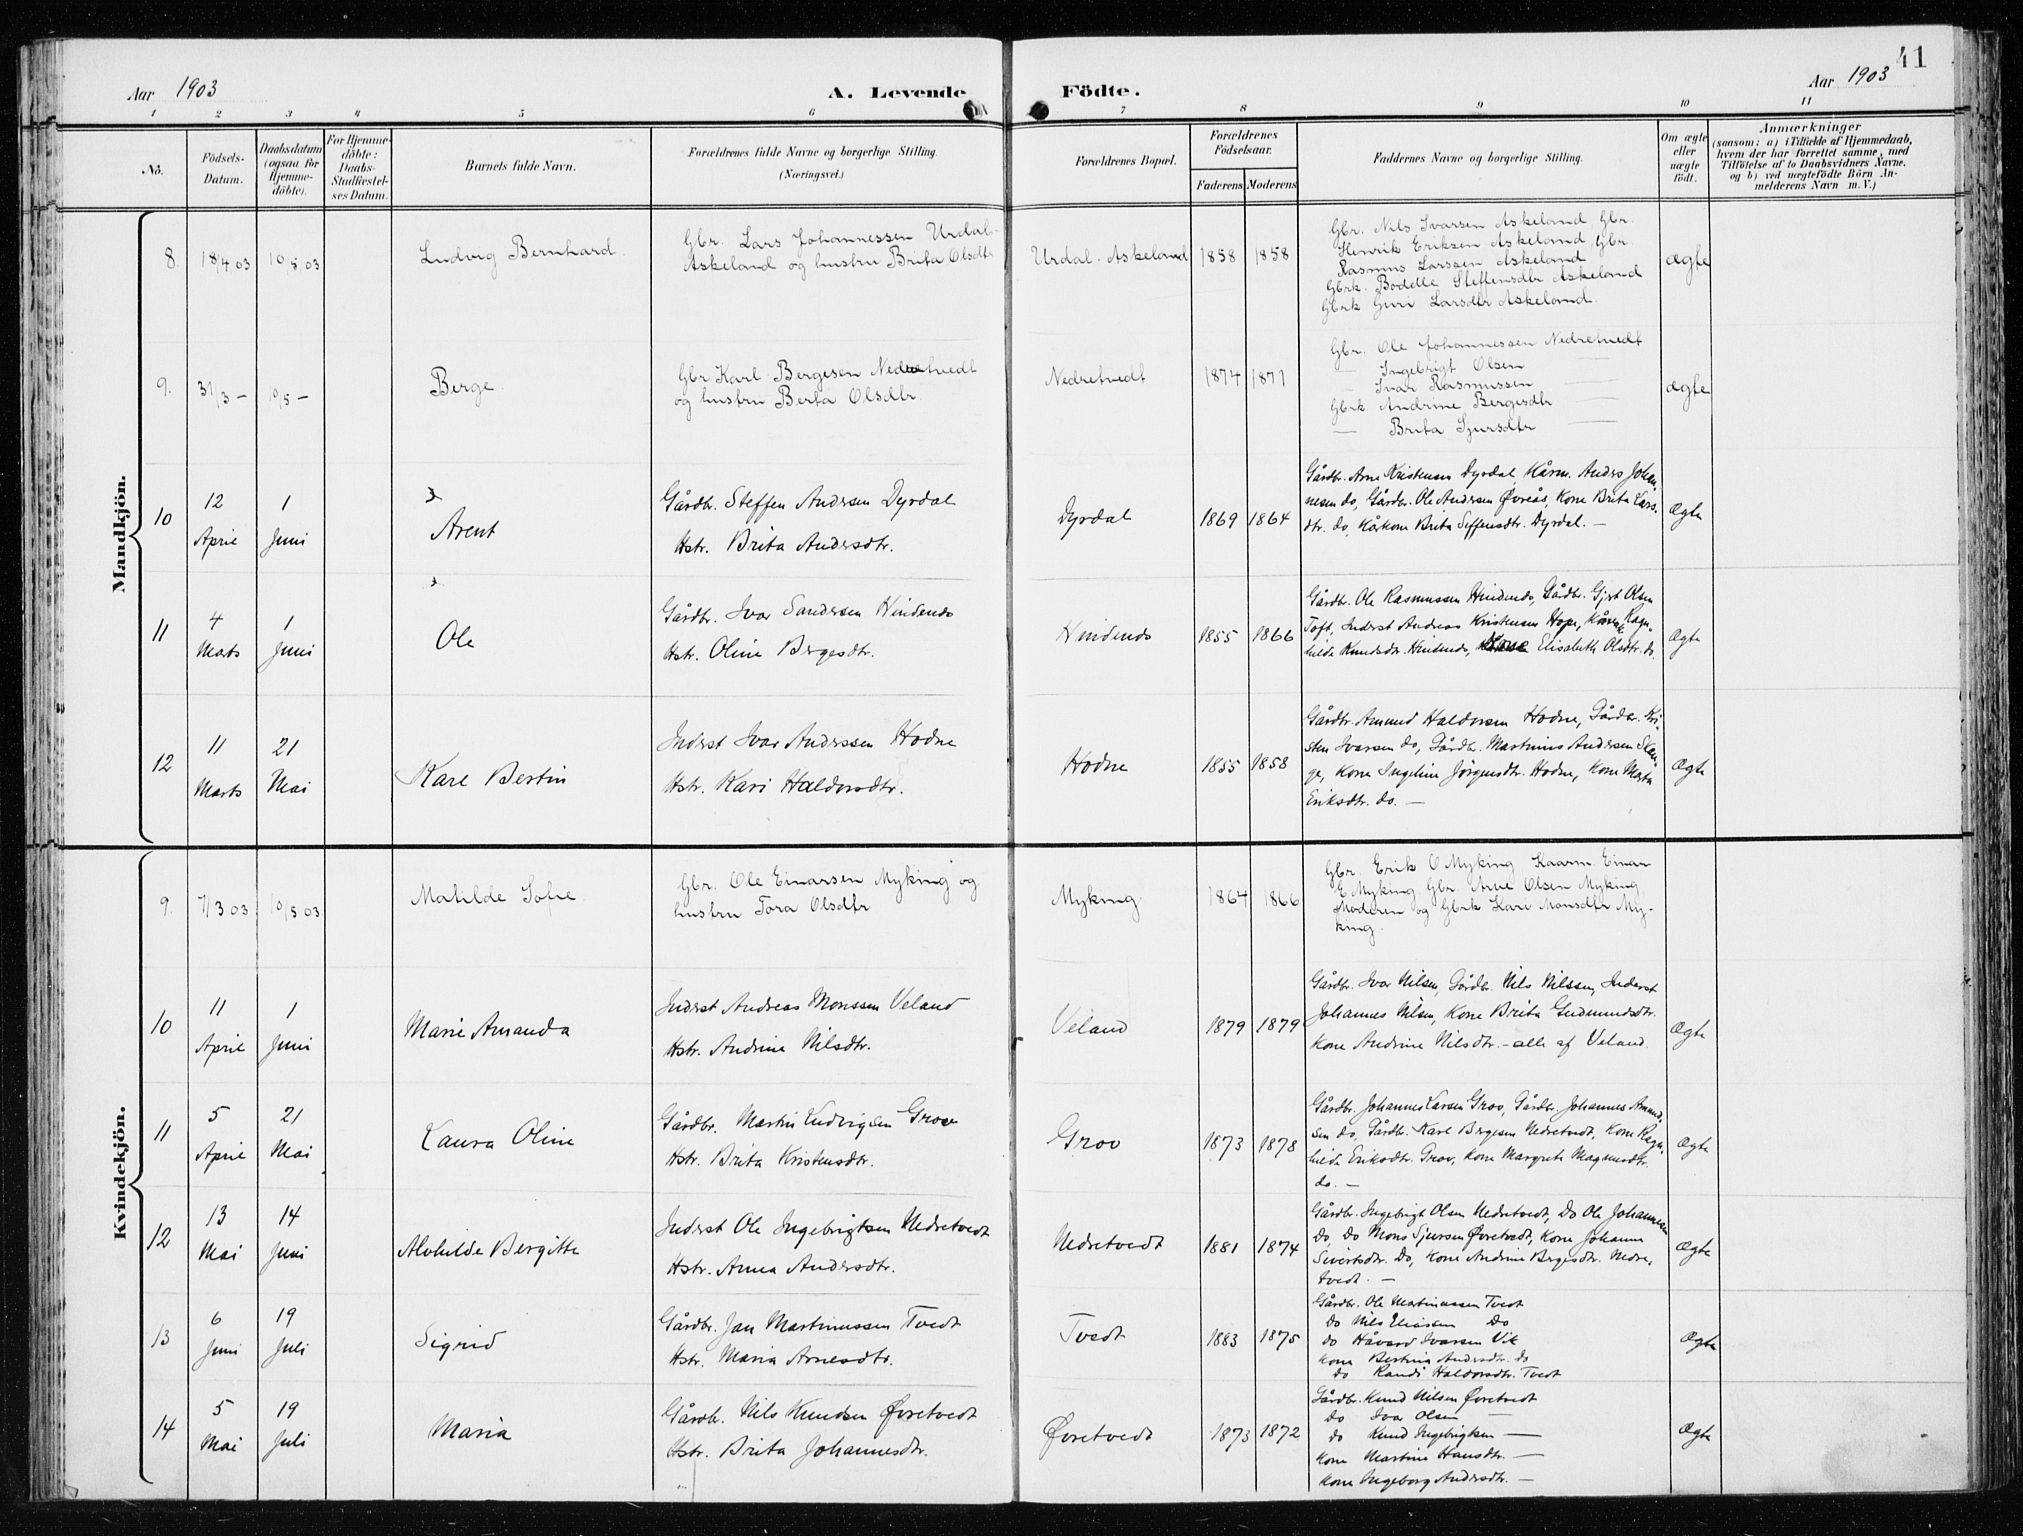 41
Aar 1903
A. Levende
Födte.
Aar 1903
1 2 3 4 5 6 7 8 9 10 11
No.
Födsels-
Datum.
Daabsdatum
(ogsaa for
Hjemme-
döbte).
For Hjemme-
döbte:
Daabs-
Stadfæstel-
ses Datum.
Barnets fulde Navn.
Forældrenes fulde Navne og borgerlige Stilling.
(Næringsvei.)
Forældrenes Bopæl.
Forældrenes
Födselsaar.
Faderens
Moderens
Faddernes Navne og borgerlige Stilling.
Om ægte
eller
uægte
födt.
Anmærkninger
(saasom: a) i Tilfælde af Hjemmedaab,
hvem der har forrettet samme, med
Tilföielse af to Daabsvidners Navne.
og b) ved uægtefödte Börn An-
melderens Navn m. V.)
Mandkjön.
8.
18/4 03
10/5 03
Ludvig Bernhard.
Gbr. Lars Johannessen Urdal-
Askeland og hustru Brita Olsdtr
Urdal. Askeland
1858
1858
Gbr. Nils Ivarsen Askeland Gbr.
Henrik Eriksen Askeland, Gbr.
Rasmus Larssen Askeland
Gbrk. Bodelle Steffensdtr Askeland
Gbrk Guri Larsdtr Askeland.
ægte
9.
31/3 —
10/5 —
Berge
Gbr Karl Bergesen Nedretvedt
og hustru Berta Olsdtr.
Nedretvedt
1874
1871
Gbr. Ole Johannessen Nedretvedt
— Ingebrigt Olsen —
— Ivar Rasmussen —
Gbrk Andrine Bergesdtr —
— Brita Sjursdtr —
ægte
10
12
April
1
Juni
Arent
Gårdbr. Steffen Andersen Dyrdal
Hstr. Brita Andersdtr.
Dyrdal
1869
1864
Gårdbr. Arne Kristensen Dyrdal, Kårm. Anders Johan-
nesen do, Gårdbr. Ole Andersen Øvreås, Kone Brita Lars-
dtr. do, Kåkone Brita Seffensdtr. Dyrdal. —
Ægte
11
4
Mats
1
Juni
Ole
Gårdbr. Ivar Sandersen Hindenes
Hstr. Oline Bergesdtr.
Hindenes
1855
1866
Gårdbr. Ole Rasmussen Hindenes, Gårdbr. Gjert Olsen
Toft, Inderst Andreas Kristensen Hope, Kårenk. Ragn-
hilde Knudsdtr. Hindenes, Elisabeth Olsdtr. do.
Ægte
12
11
Marts
21
Mai
Karl Bertin
Inderst Ivar Anderssen Hodne
Hstr. Kari Haldorsdtr.
Hodne
1855
1858
Gårdbr. Amund Haldorsen Hodne, Gårdbr. Kri-
sten Ivarsen do, Gårdbr. Martinus Andersen Slan-
ge, Kone Ingeline Jörgensdtr. Hodne, Kone Marta
Eriksdtr. do. —
Ægte
Kvindekjön.
9.
7/3 03
10/5 03
Matilde Sofie
Gbr. Ole Einarsen Myking og
hustru Tora Olsdtr
Myking
1864
1866
Gbr. Erik O Myking Kaarm. Einar
E Myking Gbr. Arne Olsen Myking
Moderen og Gbrk Kari Monsdtr My-
king.
10
11
April
1
Juni
Marie Amanda
Inderst Andreas Monssen Veland
Hstr. Andrine Nilsdtr.
Veland
1879
1879
Gårdbr. Ivar Nilsen, Gårdbr. Nils Nilssen, Inderst
Johannes Nilsen, Kone Brita Gudmundsdtr.
Kone Andrine Nilsdtr. — alle af Veland.
Ægte
11
5
April
21
Mai
Laura Oline
Gårdbr. Martin Ludvigsen Grov
Hstr. Brita Kristensdtr.
Grov
1873
1878
Gårdbr. Johannes Larsen Grov, Gårdbr. Johannes Amund-
sen do, Gårdbr. Karl Bergesen Nedretvedt, Kone Ragn-
hilde Eriksdtr. Grov, Kone Margrete Magnusdtr.
do. —
Ægte
12
13
Mai
14
Juni
Alvhilde Bergitte
Inderst Ole Ingebrigtsen Nedretvedt
Hstr. Anna Andersdtr.
Nedretvedt
1881
1874
Gårdbr. Ingebrigt Olsen Nedretvedt, Do Ole Johannesen
Do, Do Mons Sjursen Øvretvedt, Kone Johanne
Sivertsdtr. Do, Kone Andrine Bergesdtr. Nedre-
tvedt. —
Ægte
13
6
Juni
19
Juli
Sigrid
Gårdbr. Jan Martinussen Tvedt
Hstr. Maria Arnesdtr.
Tvedt
1883
1875
Gårdbr. Ole Martinussen Tvedt
Do Nils Eliassen Do
do Håvard Ivarsen Vik
Kone Bertina Andersdtr. do
do Randi Haldorsdtr. Tvedt
Ægte
14
5
Mai
19
Juli
Maria
Gårdbr. Nils Knudsen Øvretvedt
Hstr. Brita Johannesdtr.
Øvretvedt
1873
1872
Gårdbr. Knud Nilsen Øvretvedt
do Ivar Olsen —
do Knud Ingebrigtsen —
Kone Martine Hansdtr. —
Kone Ingeborg Andersdtr. —
Ægte